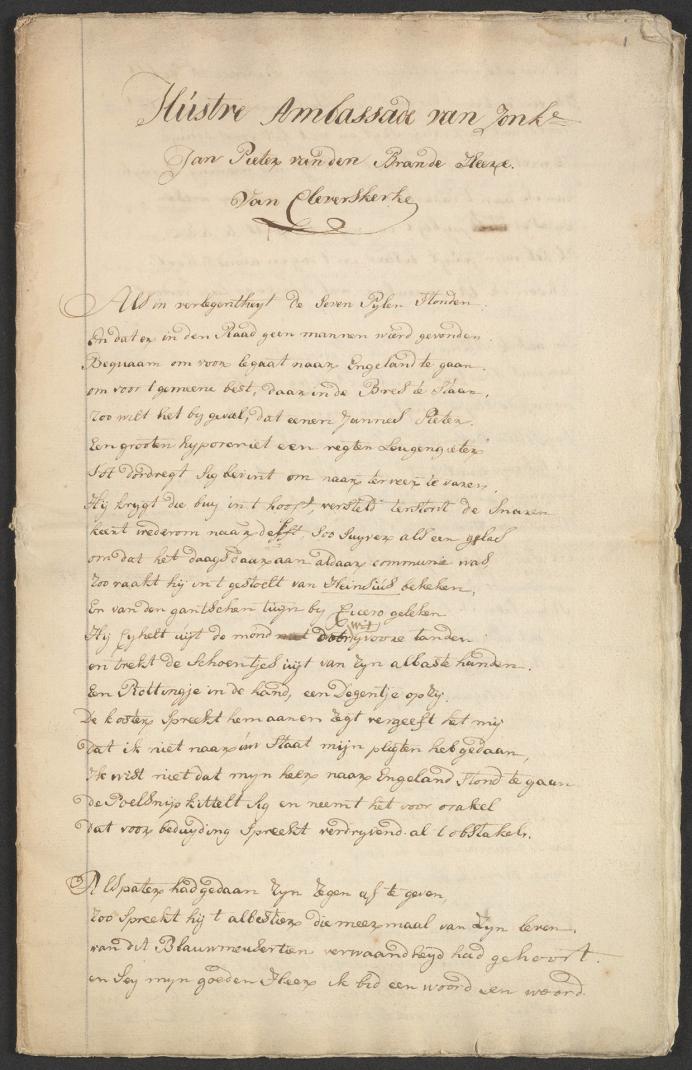 1
Illústre Ambassade van Jonkr
Jan Pieter van den Brande Heere.
Van Cleverskerke
Als in verlegentheyt de Seven Pylen Stonden
En dat er in den Raad geen mannen wierd gevonden
Bequaam om voor legaat naar Engeland te gaan
om voor 't gemeene best, daar in de Bres te Staan,
Zoo wilt het by geval, dat eenen Jannes Pieter
Een grooten hypocriet een regten Leugengieter
Tot dordregt Sig bevint om naar terveer te varen,
Hij krygt die buy in 't hooft, versteld tenstont de Snaren
keert wederom naar delft Soo Suyver als een glas
om dat het daags daar aan aldaar communie was
Zoo raakt hij in 't gestoelt van Heinsiús bekeken,
En van den gantschen tuyn by Cicero geleken
Hij Eykelt úijt de mond wit yvoore tanden
en trekt de Schoentjes úijt van Zyn albaste handen.
Een Rottingje in de hand, een Degentje op Zy
De koster Spreekt hem aan en Zegt vergeeft het mij
dat ik niet naar úw Staat mijn pligten heb gedaan,
Ik wist niet dat myn heer naar Engeland Stond te gaan
de Poelsnip kittelt Sig en neemt het voor orakel
dat voor beduyding Spreekt verdryvend al 't obstakel.
Als pater had gedaan Zyn Zegen af te geven,
Zoo Spreekt hij 't albester die meermaal van Zyn leven,
van dit Blauwmeusertien verwaandheyd had gehoort.
en Sey myn goeden Heer ik bid een woord een woord.